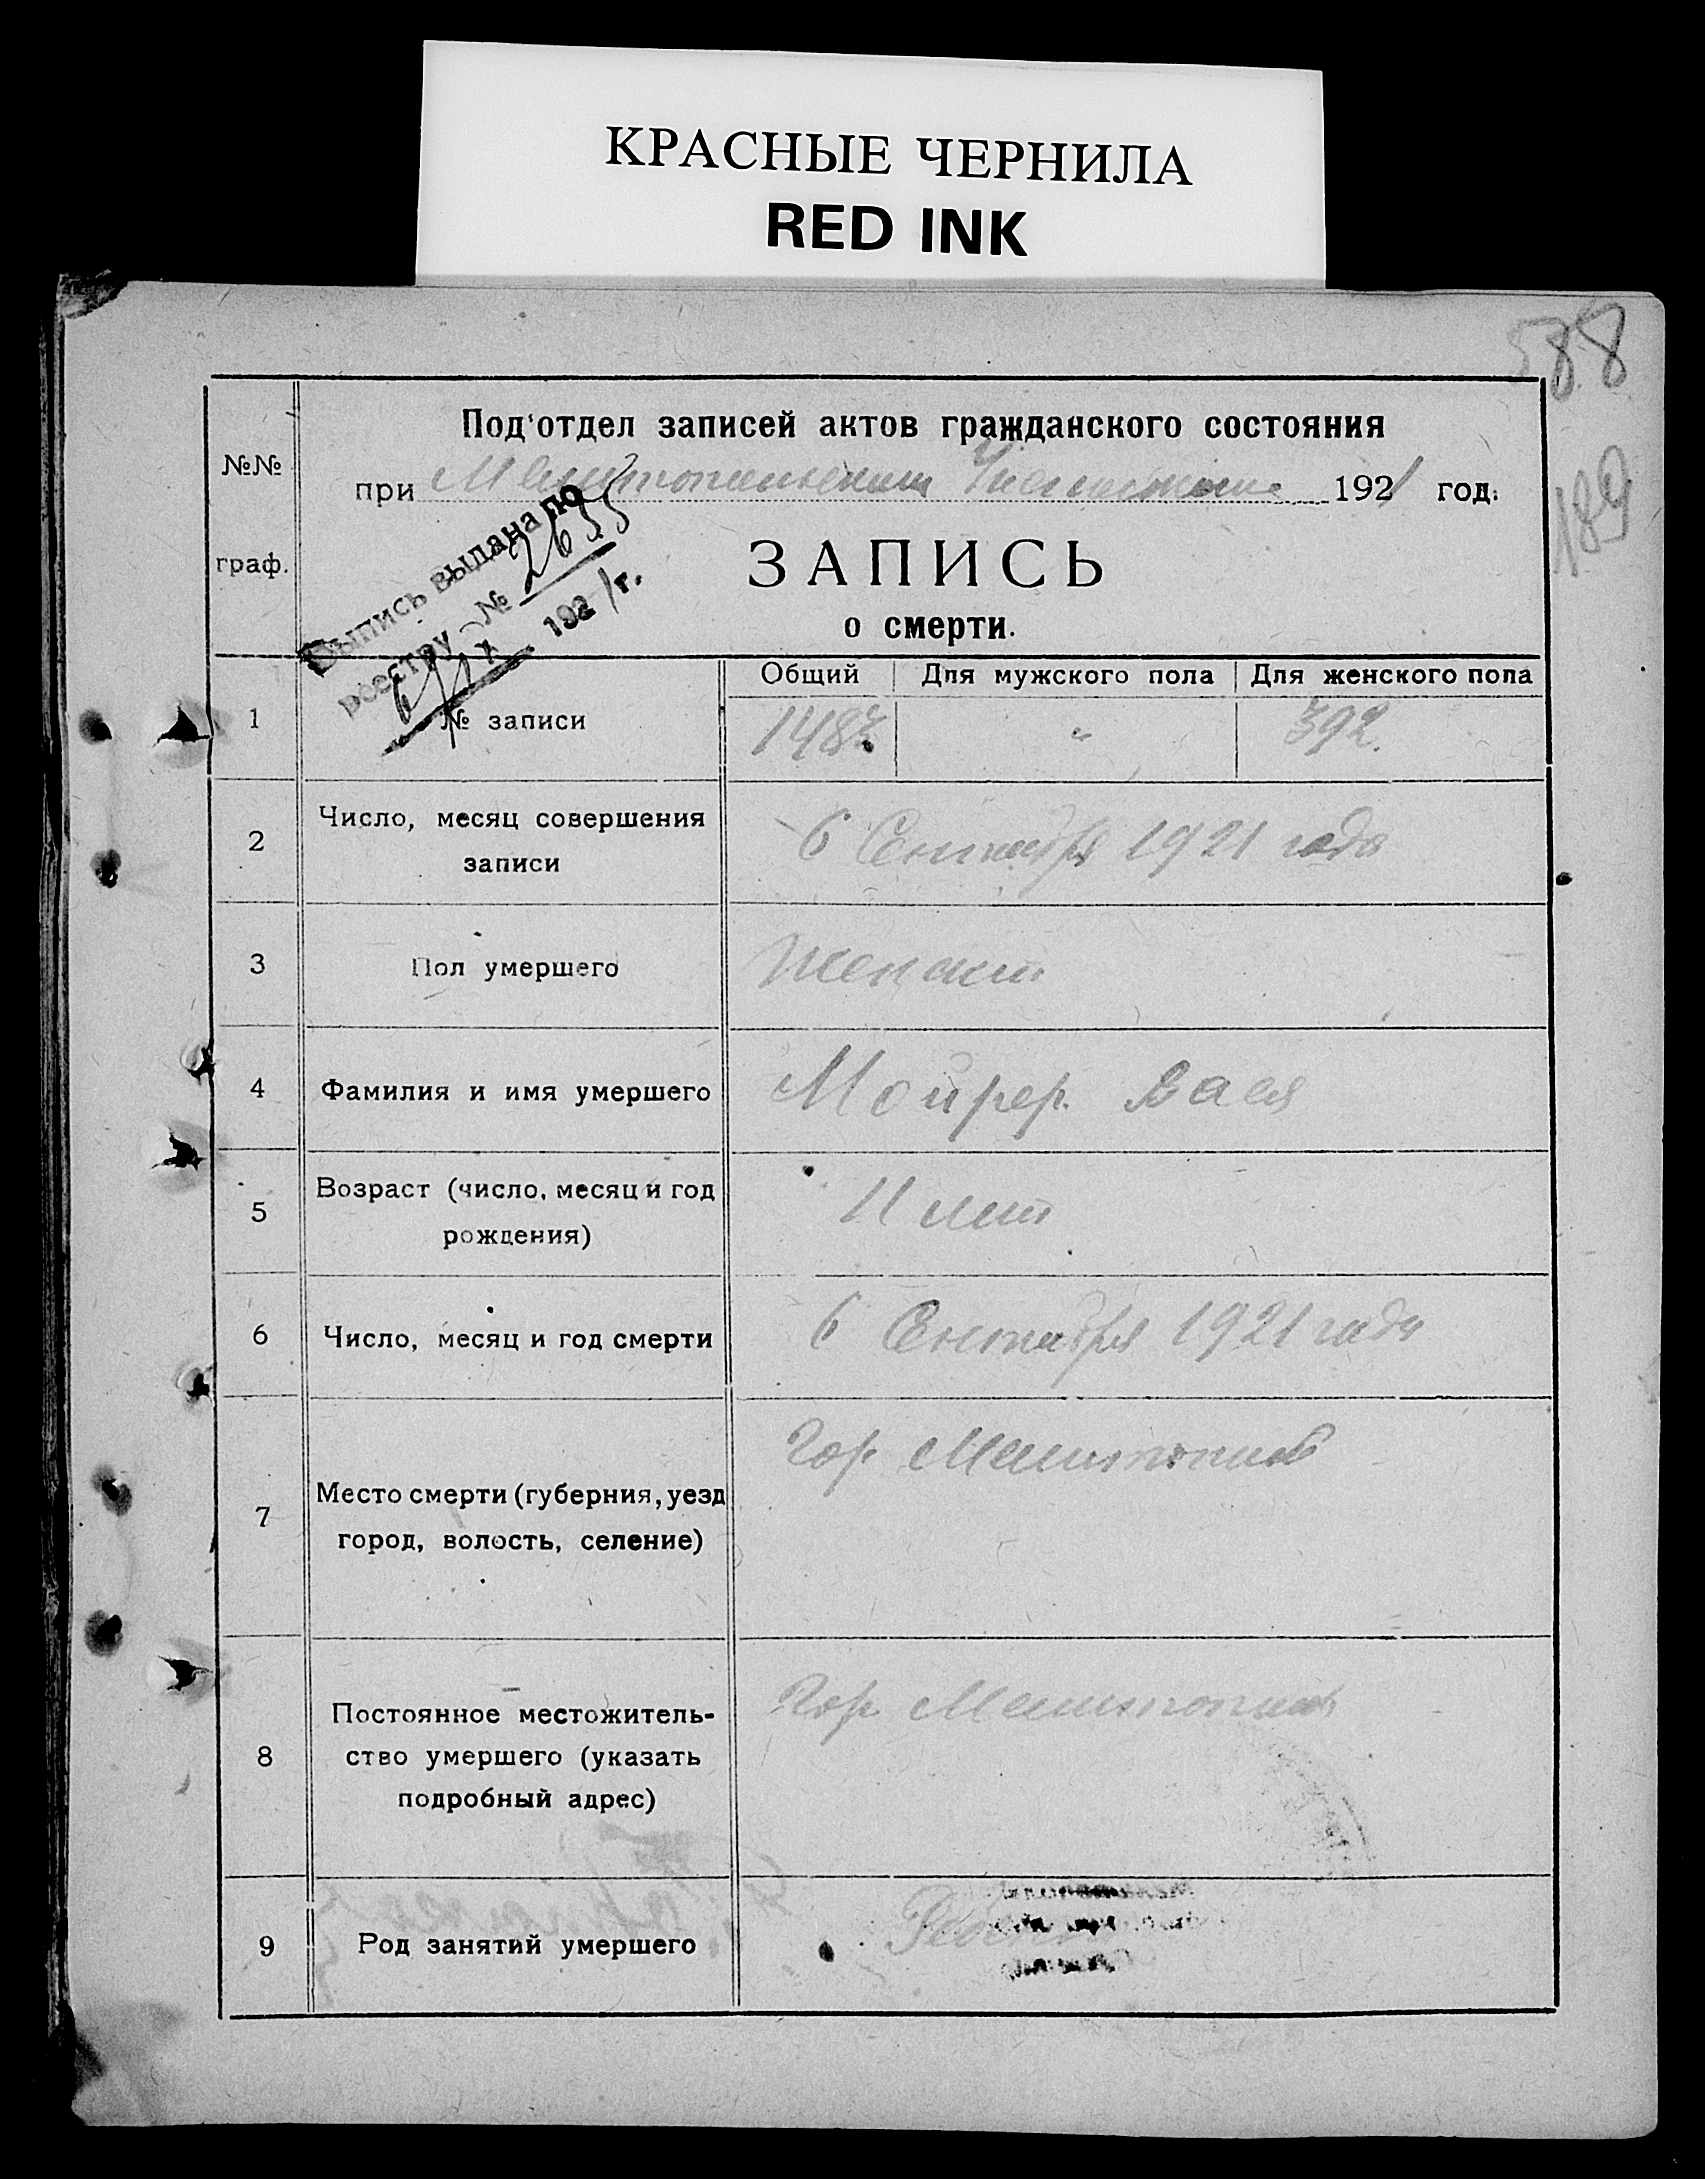 КРАСНЫЕ ЧЕРНИЛА
RED INK
588
189
№№ граф.
Под'отдел записей актов гражданского состояния
при Мелитопольском 1921 год.
ЗАПИСЬ
о смерти.
Выпись выдана по
реестру № 2655
6/IX 1921 г.
Общий Для мужского пола Для женского пола
1 № записи 1487 " 392.
2 Число, месяц совершения записи 6 Сентября 1921 года
3 Пол умершего Женский
4 Фамилия и имя умершего Вася
5 Возраст (число, месяц и год рождения) 11 лет
6 Число, месяц и год смерти 6 Сентября 1921 года
7 Место смерти (губерния, уезд город, волость, селение) Гор Мелитополь
8 Постоянное местожительство умершего (указать подробный адрес) Гор Мелитополь
9 Род занятий умершего